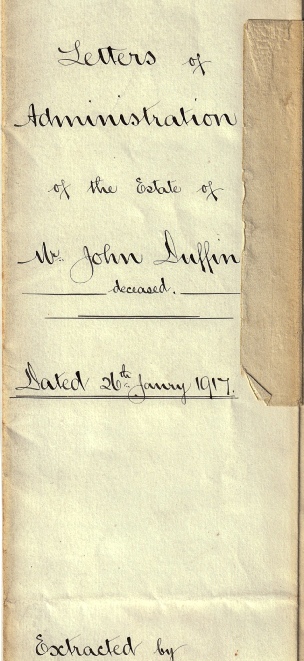 Letters of
Administration
of the Estate of
Mr. John Duffin
deceased.
Dated 26th Janry 1917.
Extracted by